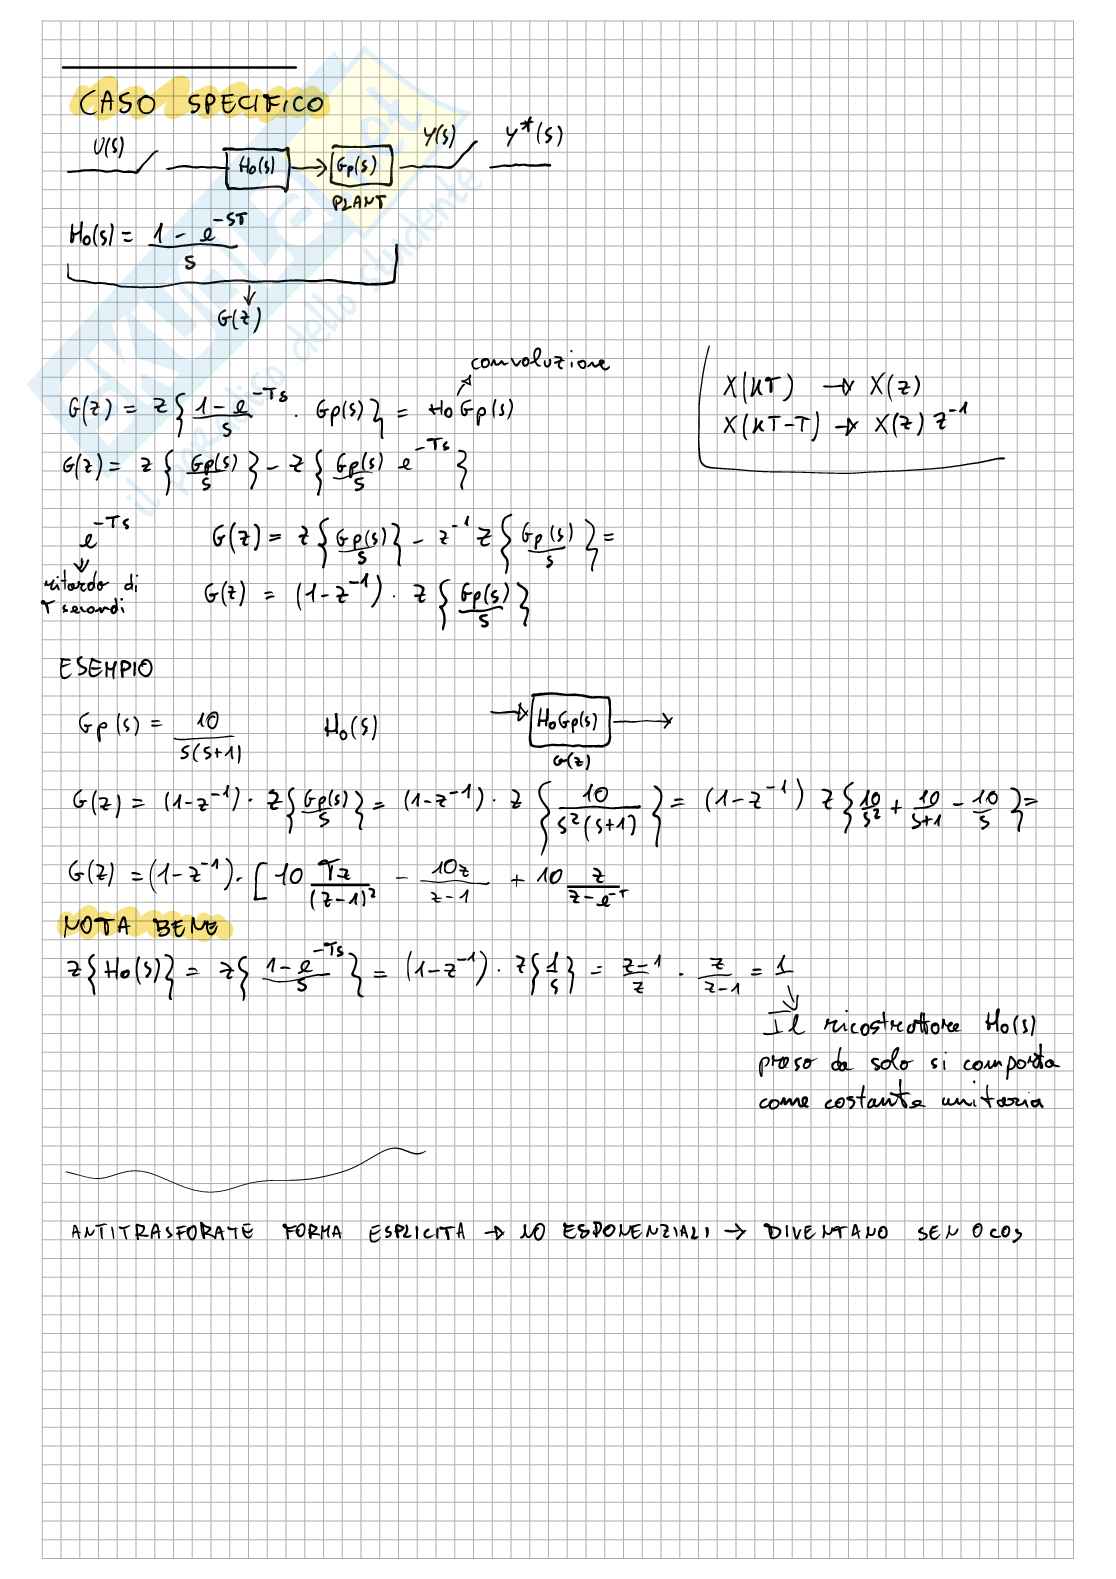 CASO SPECIFICO
U(s) H₀(s) Gp(s) Y(s) Y*(s)
PLANT
H₀(s) = (1 - e^(-sT)) / s
G(z)
convoluzione
G(z) = Z{ (1 - e^(-Ts)) / s · Gp(s) } = H₀Gp(s)
X(KT) → X(z)
X(KT-T) → X(z) z⁻¹
G(z) = Z{ Gp(s) / s } - Z{ Gp(s) / s e^(-Ts) }
e^(-Ts)
ritardo di
T secondi
G(z) = Z{ Gp(s) / s } - z⁻¹ Z{ Gp(s) / s } =
G(z) = (1 - z⁻¹) · Z{ Gp(s) / s }
ESEMPIO
Gp(s) = 10 / s(s+1) H₀(s) H₀Gp(s)
G(z)
G(z) = (1 - z⁻¹) · Z{ Gp(s) / s } = (1 - z⁻¹) · Z{ 10 / s²(s+1) } = (1 - z⁻¹) Z{ 10/s² + 10/(s+1) - 10/s } =
G(z) = (1 - z⁻¹) · [ 10 Tz / (z-1)² - 10z / (z-1) + 10 z / (z - e^(-T))
NOTA BENE
Z{ H₀(s) } = Z{ (1 - e^(-Ts)) / s } = (1 - z⁻¹) · Z{ 1/s } = (z-1)/z · z/(z-1) = 1
Il ricostruttore H₀(s)
preso da solo si comporta
come costante unitaria
ANTITRASFORATE FORMA ESPLICITA → NO ESPONENZIALI → DIVENTANO SEN O COS